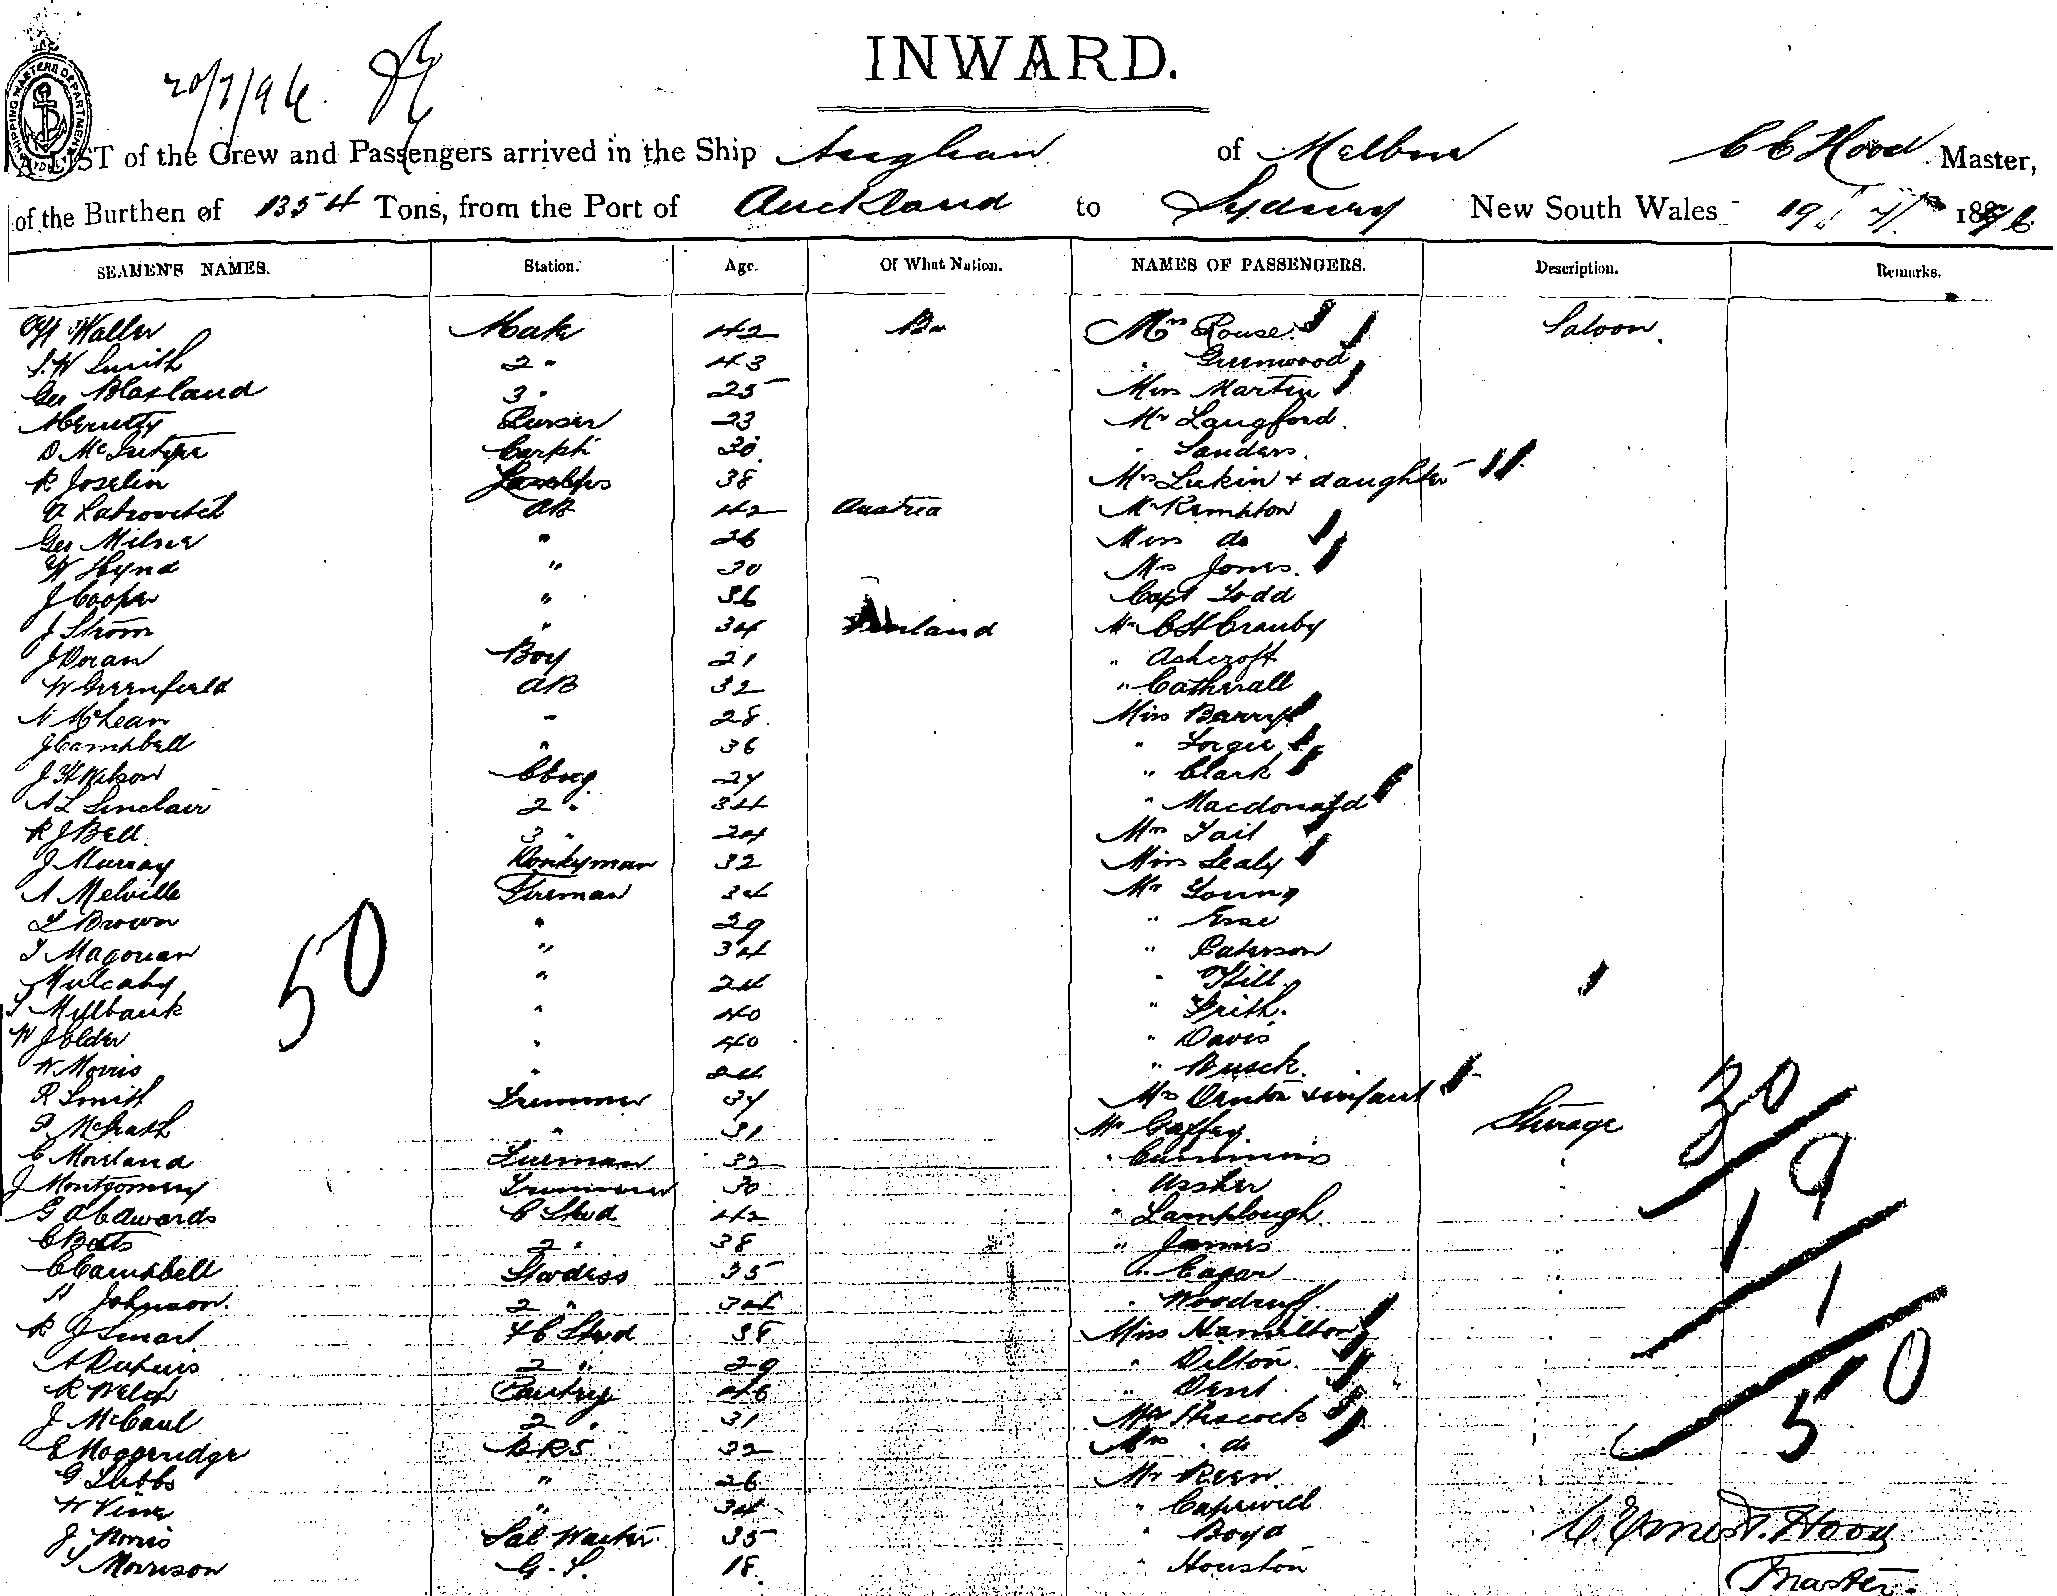 20/7/96
INWARD.
A LIST of the Crew and Passengers arrived in the Ship Anglian of Melbne C E Hood Master,
of the Burthen of 1354 Tons, from the Port of Auckland to Sydney New South Wales 19 7 1896
SEAMEN'S NAMES. Station. Age. Of What Nation. NAMES OF PASSENGERS. Description. Remarks.
Waller Mate 42 Br Mrs Rouse Saloon.
J. W Smith 2 " 43 " Greenwood
Geo Blaxland 3 " 25 Miss Martin
Purser 23 Mr Langford
D McIntyre Carptr 30 " Sanders.
R Joselin Lamps 38 Mrs Lukin + daughter
A Latrovitch AB 42 Austria Mr Kempton
Geo Milner " 26 Miss do
W Hynd " 30 Mrs Jones.
J Cooper " 36 Capt Todd
J Strom " 34 Finland Mr C H Cranby
J Doran Boy 21 " Ashcroft
W Greenfield AB 32 " Catherall
N McLean " 28 Miss Barry
J Campbell " 36 " Lorgie
J H Watson C Eng 27 " Clark
A L Sinclair 2 " 34 " Macdonald
R J Bell 3 " 24 Mrs Tait
J Murray Donkyman 32 Miss Sealy
A Melville Fireman 34 Mr Young
L Brown " 29 "
T Magouan " 34 " Paterson
Mulcahy " 24 " Hill
T Millbank " 40 " Frith.
W J Elder " 40 " Davis
W Morris " 24 " Busck.
R Smith Trimmer 37 Mrs Denton + infant
P McGrath " 31 Mr Gaffey Steerage
C Morland Fireman 32 " Cummins
J Montgomery Trimmer 30 " Assher
G A Edwards C Stwd 42 " Lamplough
C Betts 2 " 38 " James
C Campbell Stwdess 35 "
A Johnson. 2 " 34 " Woodruff
R J Smart F C Stwd 38 Miss Hamilton
A Rufus 2 " 29 " Dilton.
R Welch Pantry 46 " Dent
J McCaul 2 " 31 Mr Hiscocks
E Moggeridge BRS 32 Mrs " do
G Tubbs " 26 Mr Keen
W Vine " 34 " Capewell
J Norris Sal Waiter 35 " Boyd
T Morrison G. S. 18 " Houston
50
30
19
1
50
C. Ernest. Hood
Master.